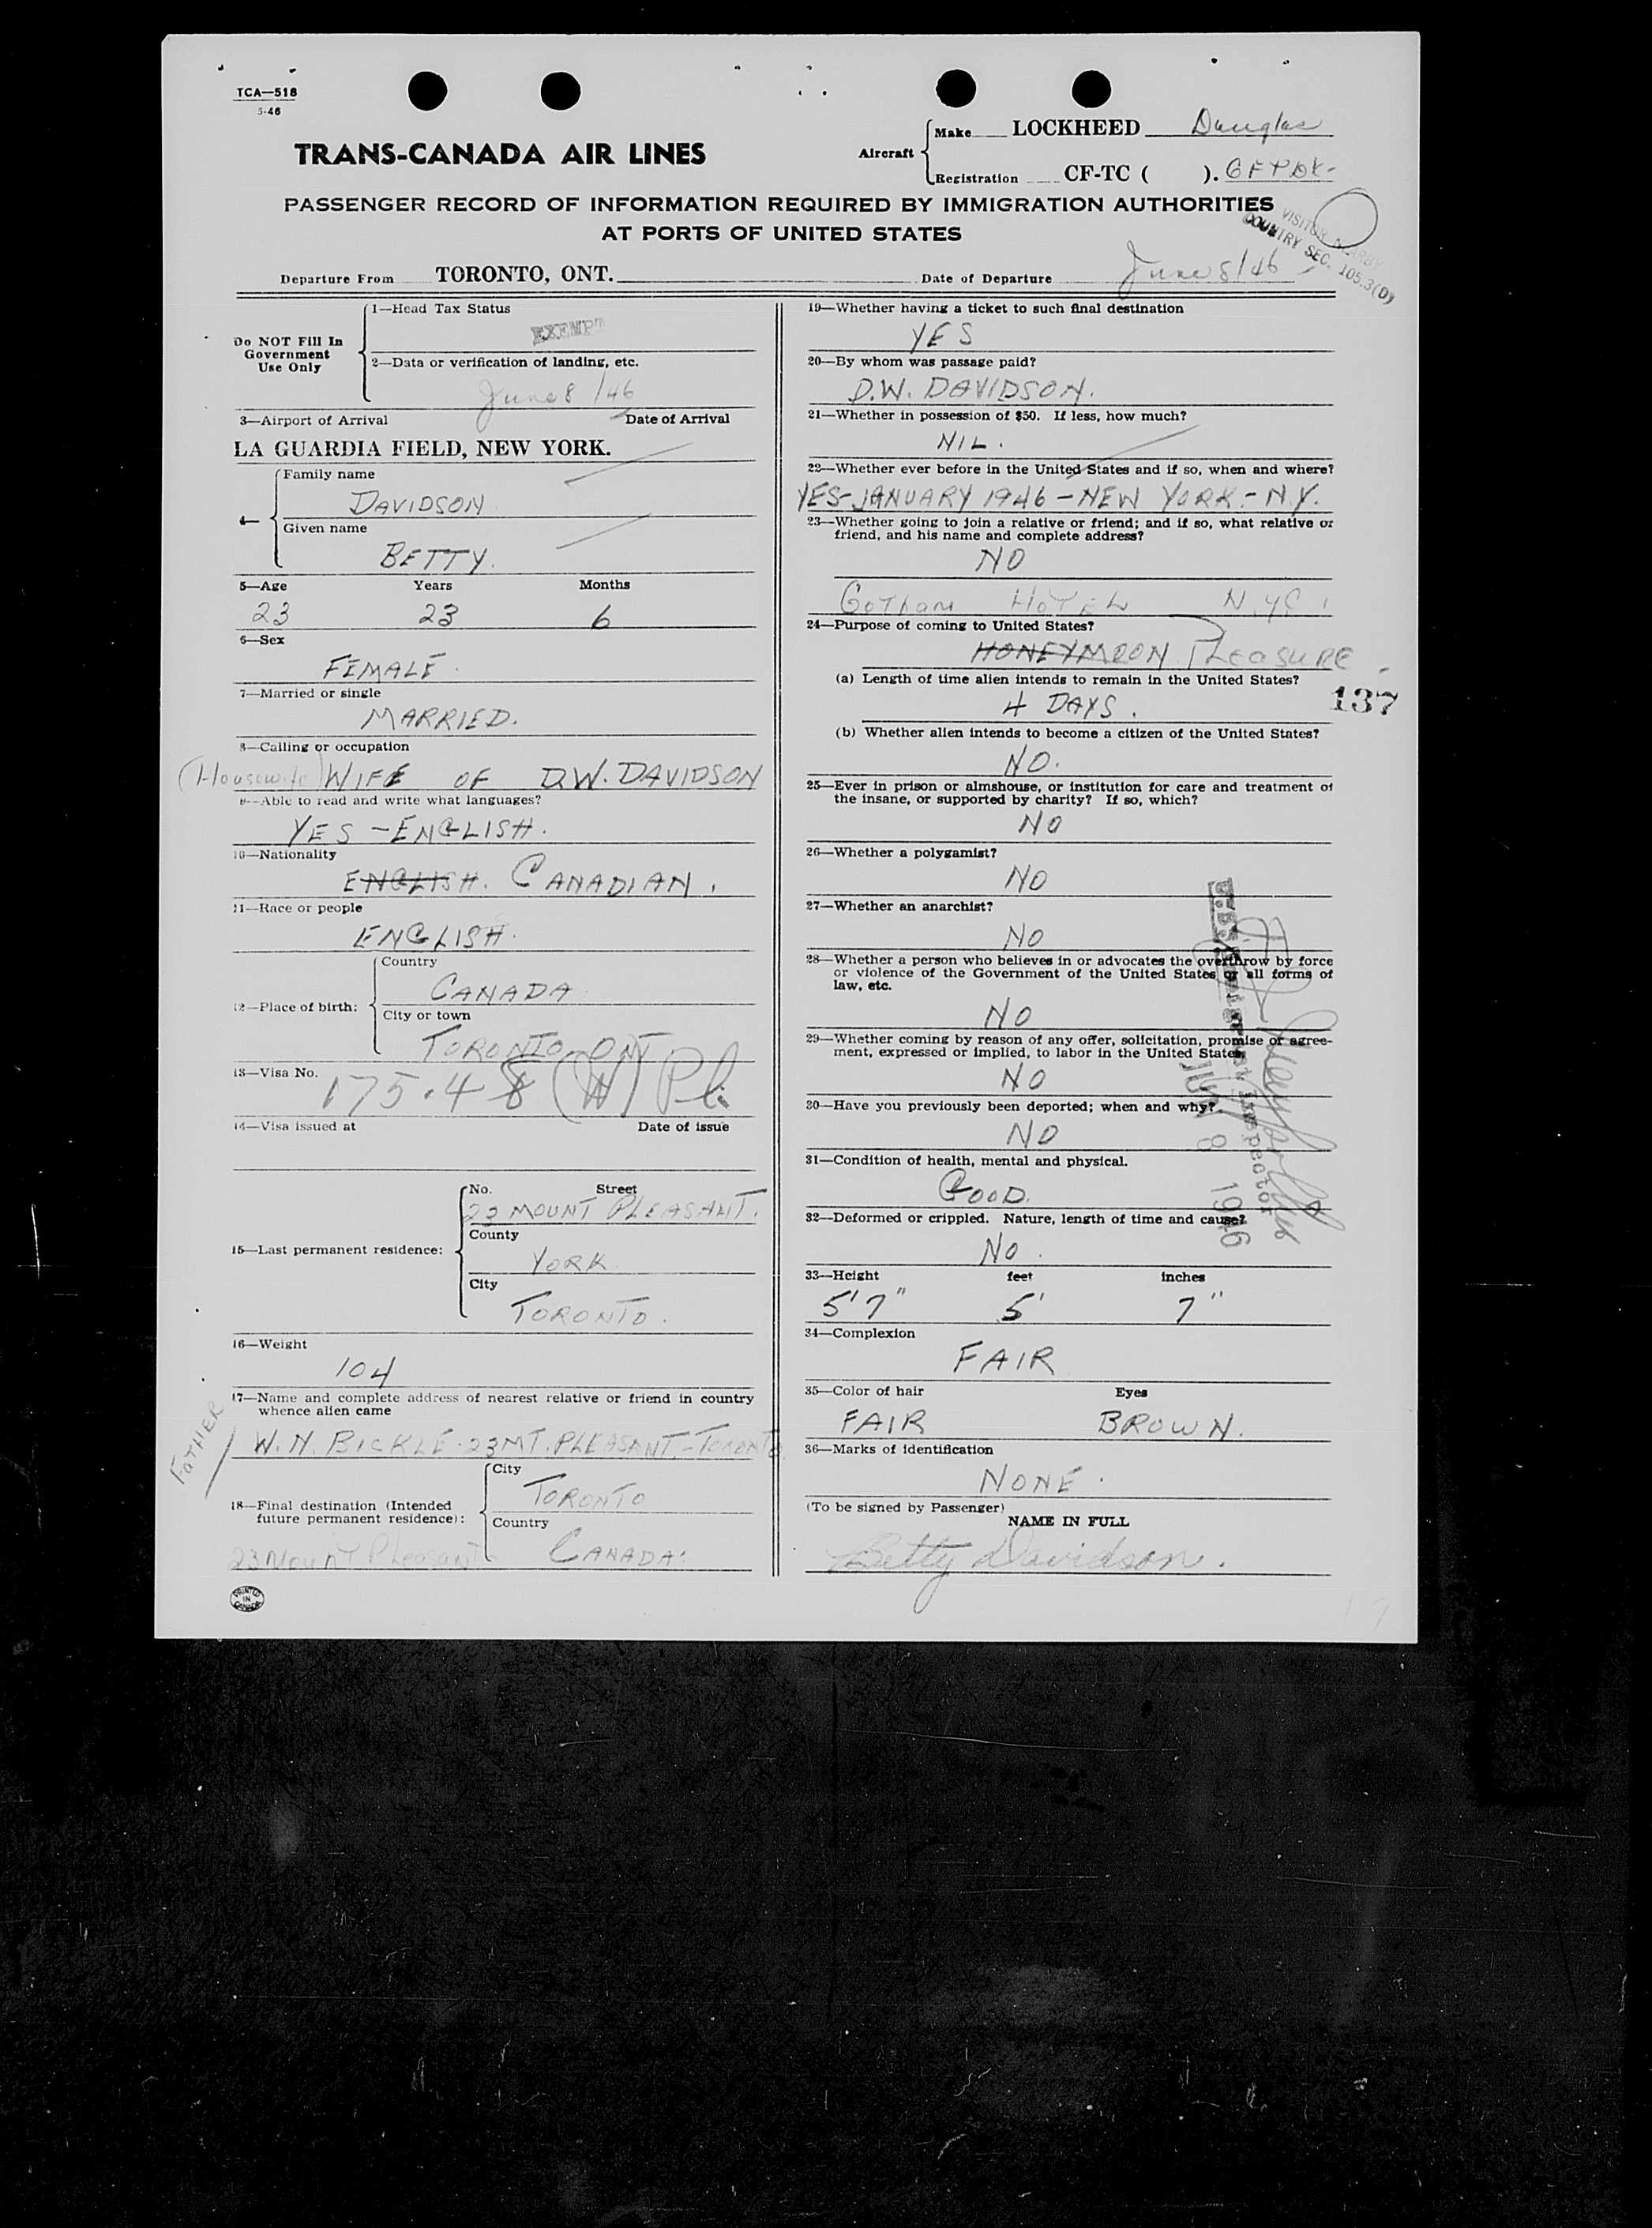 TCA—518
5-46
TRANS-CANADA AIR LINES
Aircraft
Make LOCKHEED Douglas
Registration CF-TC ( ).
PASSENGER RECORD OF INFORMATION REQUIRED BY IMMIGRATION AUTHORITIES
AT PORTS OF UNITED STATES
VISITOR NEARBY
COUNTRY SEC. 105.3(D)
Departure From TORONTO, ONT. Date of Departure June 8/46
Do NOT Fill In
Government
Use Only
1—Head Tax Status
EXEMPT
2—Data or verification of landing, etc.
June 8/46
3—Airport of Arrival Date of Arrival
LA GUARDIA FIELD, NEW YORK.
4—
Family name
DAVIDSON
Given name
BETTY.
5—Age Years Months
23 23 6
6—Sex
FEMALE.
7—Married or single
MARRIED.
8—Calling or occupation
(Housewife) WIFE OF D.W. DAVIDSON
9—Able to read and write what languages?
YES - ENGLISH.
10—Nationality
ENGLISH. CANADIAN.
11—Race or people
ENGLISH.
12—Place of birth:
Country
CANADA
City or town
TORONTO ONT
13—Visa No. 175.48
14—Visa issued at Date of issue
15—Last permanent residence:
No. Street
23 MOUNT PLEASANT.
County
YORK
City
TORONTO.
16—Weight
104
17—Name and complete address of nearest relative or friend in country
whence alien came
FATHER
W.N. BICKLE. 23 MT. PLEASANT - TORONTO
18—Final destination (Intended
future permanent residence):
City
TORONTO
Country
23 Mount Pleasant CANADA.
PRINTED
IN
CANADA
19—Whether having a ticket to such final destination
YES
20—By whom was passage paid?
D.W. DAVIDSON.
21—Whether in possession of $50. If less, how much?
NIL.
22—Whether ever before in the United States and if so, when and where?
YES-JANUARY 1946 - NEW YORK - N.Y.
23—Whether going to join a relative or friend; and if so, what relative or
friend, and his name and complete address?
NO
Gotham HOTEL N.Y.C.
24—Purpose of coming to United States?
HONEYMOON. PLEASURE
(a) Length of time alien intends to remain in the United States?
4 DAYS.
137
(b) Whether alien intends to become a citizen of the United States?
NO.
25—Ever in prison or almshouse, or institution for care and treatment of
the insane, or supported by charity? If so, which?
NO
26—Whether a polygamist?
NO
27—Whether an anarchist?
NO
28—Whether a person who believes in or advocates the overthrow by force
or violence of the Government of the United States or all forms of
law, etc.
NO
29—Whether coming by reason of any offer, solicitation, promise or agree-
ment, expressed or implied, to labor in the United States
NO
30—Have you previously been deported; when and why?
NO
31—Condition of health, mental and physical.
GOOD.
32—Deformed or crippled. Nature, length of time and cause?
NO.
U.S. Immigrant Inspector
JUN 8 1946
33—Height feet inches
5'7" 5' 7"
34—Complexion
FAIR
35—Color of hair Eyes
FAIR BROWN.
36—Marks of identification
NONE.
(To be signed by Passenger)
NAME IN FULL
Betty Davidson.